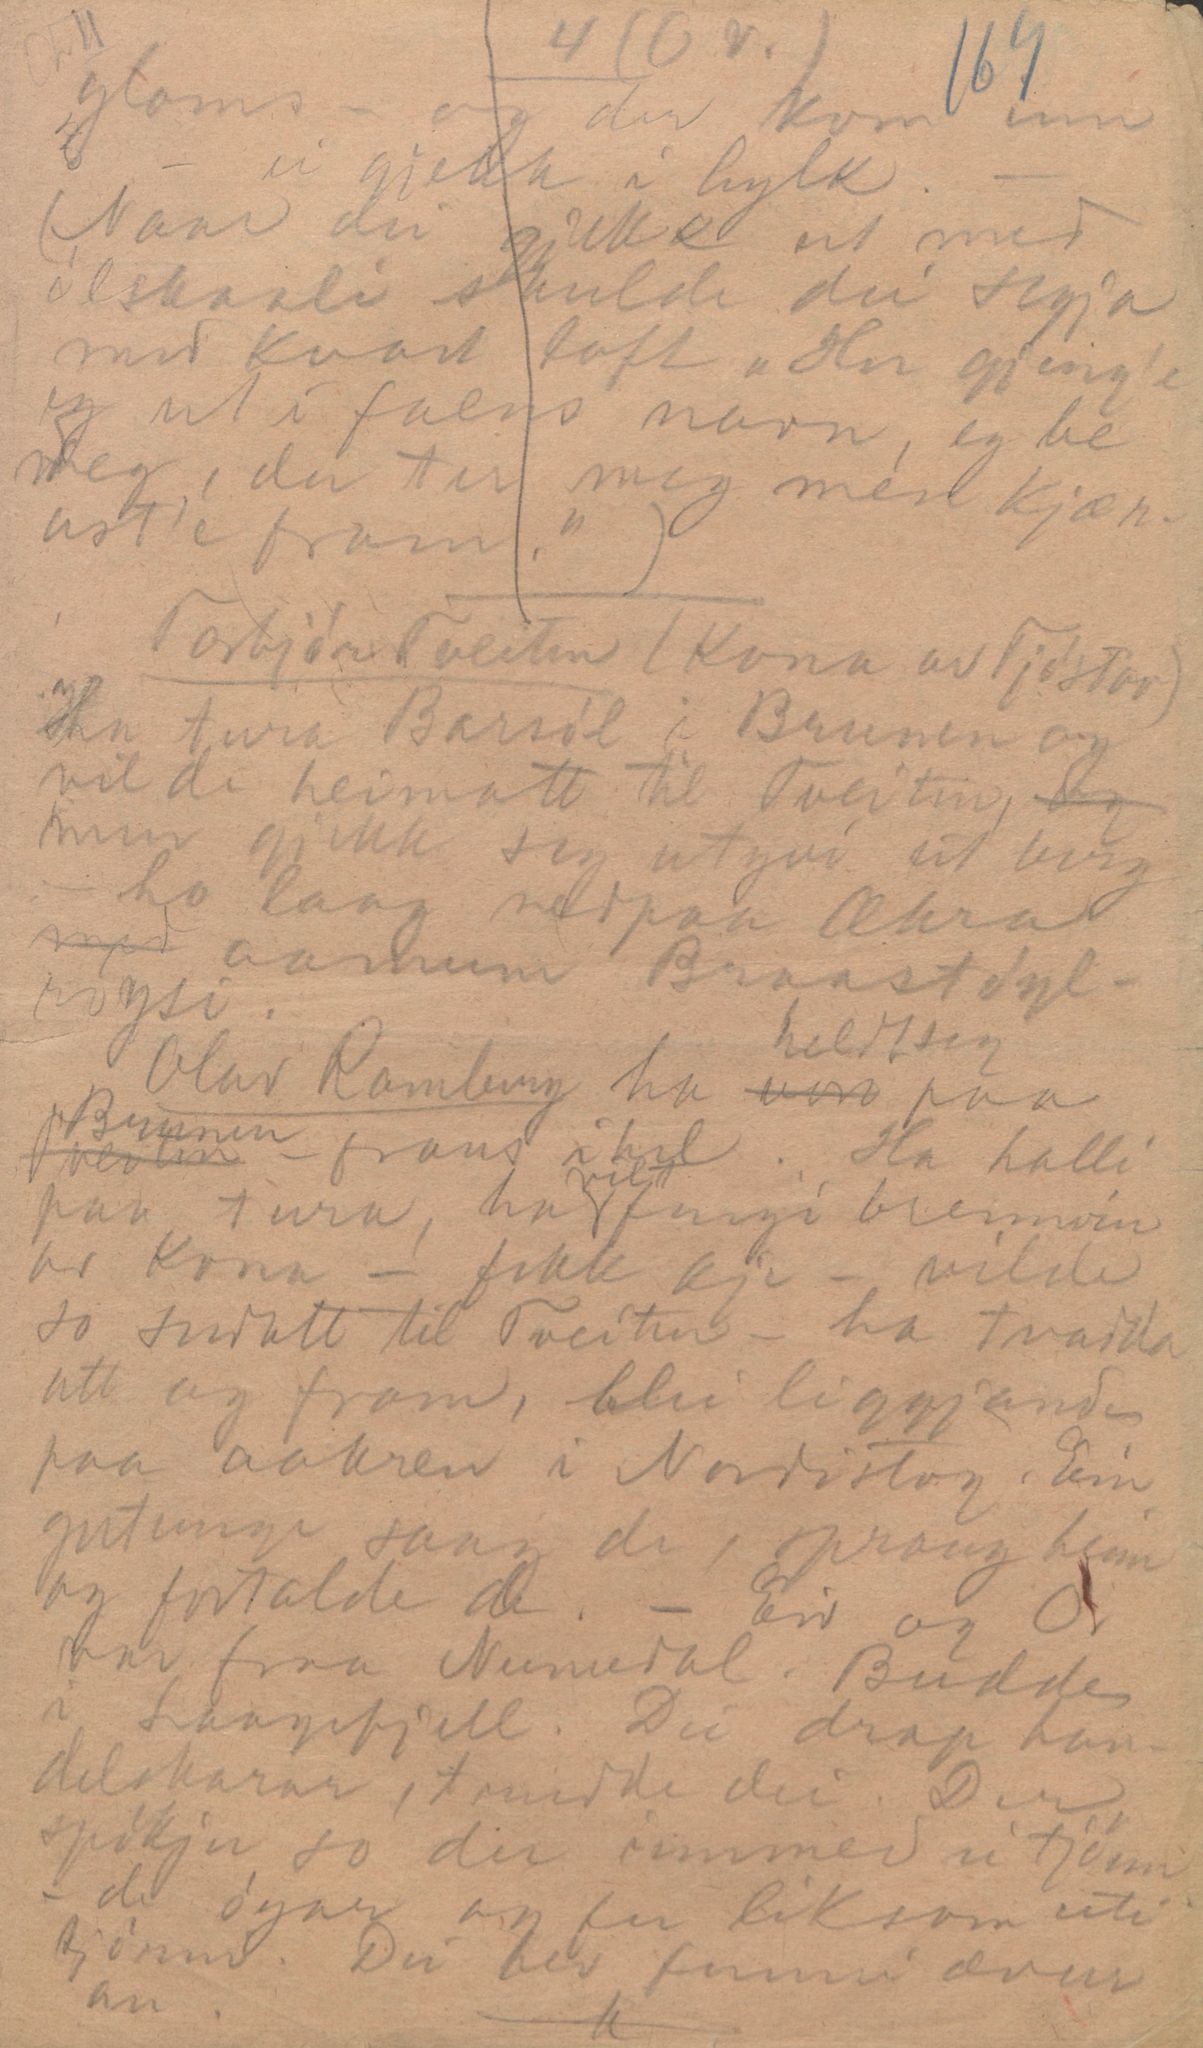 4 (O v.)
164
gloms - og der kom inn
- ei gjekk i hylk. -
(Naar dei gjekk ut med
ölskaali skulde dei segja
med kvart toft "Her gjeng'e
eg ut i faens navn, eg be
meg, du ter meg men kjær-
ast'e fram.")
Torbjör Tveiten (Kona av Tjöstov)
Ha tura Barsöl i Brunen og
vilde heimatt til Tveiten, og
men gjekk seg utyvi eit berg
- ho laag nedpaa Ækra
med aamum Braastöyl-
röysi.
Olav Romberg ha von heldt seg paa
Tveiten Brunen - fraus ihel. Ha halli
paa tura, ha vilt fengi brennvin
av Kona - fekk kje - vilde
so sudatt til Tveiten - ha tradda
att og fram, blei liggjandes
paa aakren i Nordistog. Ein
gutunge saag de, sprang heim
og fortalde de. - Eiv og O
var fraa Numedal. Budde
i Haugefjell. Dei drap han-
delskarar, trudde dei. Der
spökjer so der ummed ei tjönn
- de ögar og fer liksom uti
tjönn. Dei hev funni ævur
an.